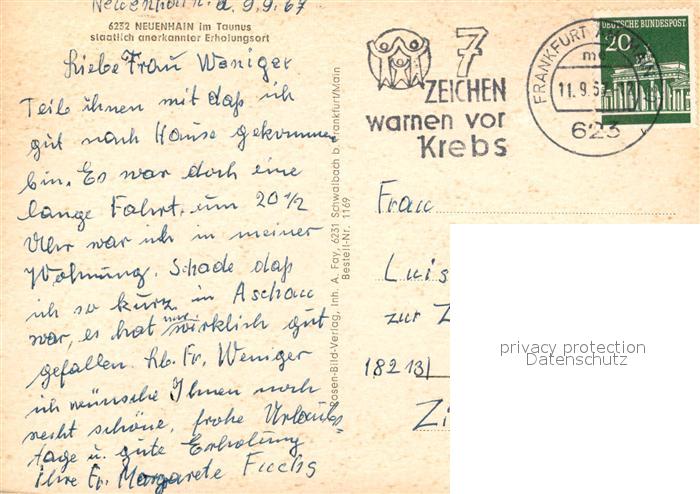 Neuenhain d. 9.9.67
6232 NEUENHAIN im Taunus
staatlich anerkannter Erholungsort
Liebe Frau Weniger
Teile ihnen mit daß ich
gut nach Hause gekommen
bin. Es war doch eine
lange Fahrt, um 20 1/2
Uhr war ich in meiner
Wohnung. Schade daß
ich so kurz in Aschau
war, es hat mir wirklich gut
gefallen. Lb. Fr. Weniger
ich wünsche Ihnen noch
recht schöne, frohe Urlaubs-
tage u. gute Erholung
Ihre Fr. Margarete Fuchs
Rosen-Bild-Verlag, Inh. A. Fay, 6231 Schwalbach b. Frankfurt/Main
Bestell-Nr. 1169
7
ZEICHEN
warnen vor
Krebs
FRANKFURT AM MAIN
11.9.67
623
DEUTSCHE BUNDESPOST
20
Frau
Luis
zur Z
18213
Zi
privacy protection
Datenschutz